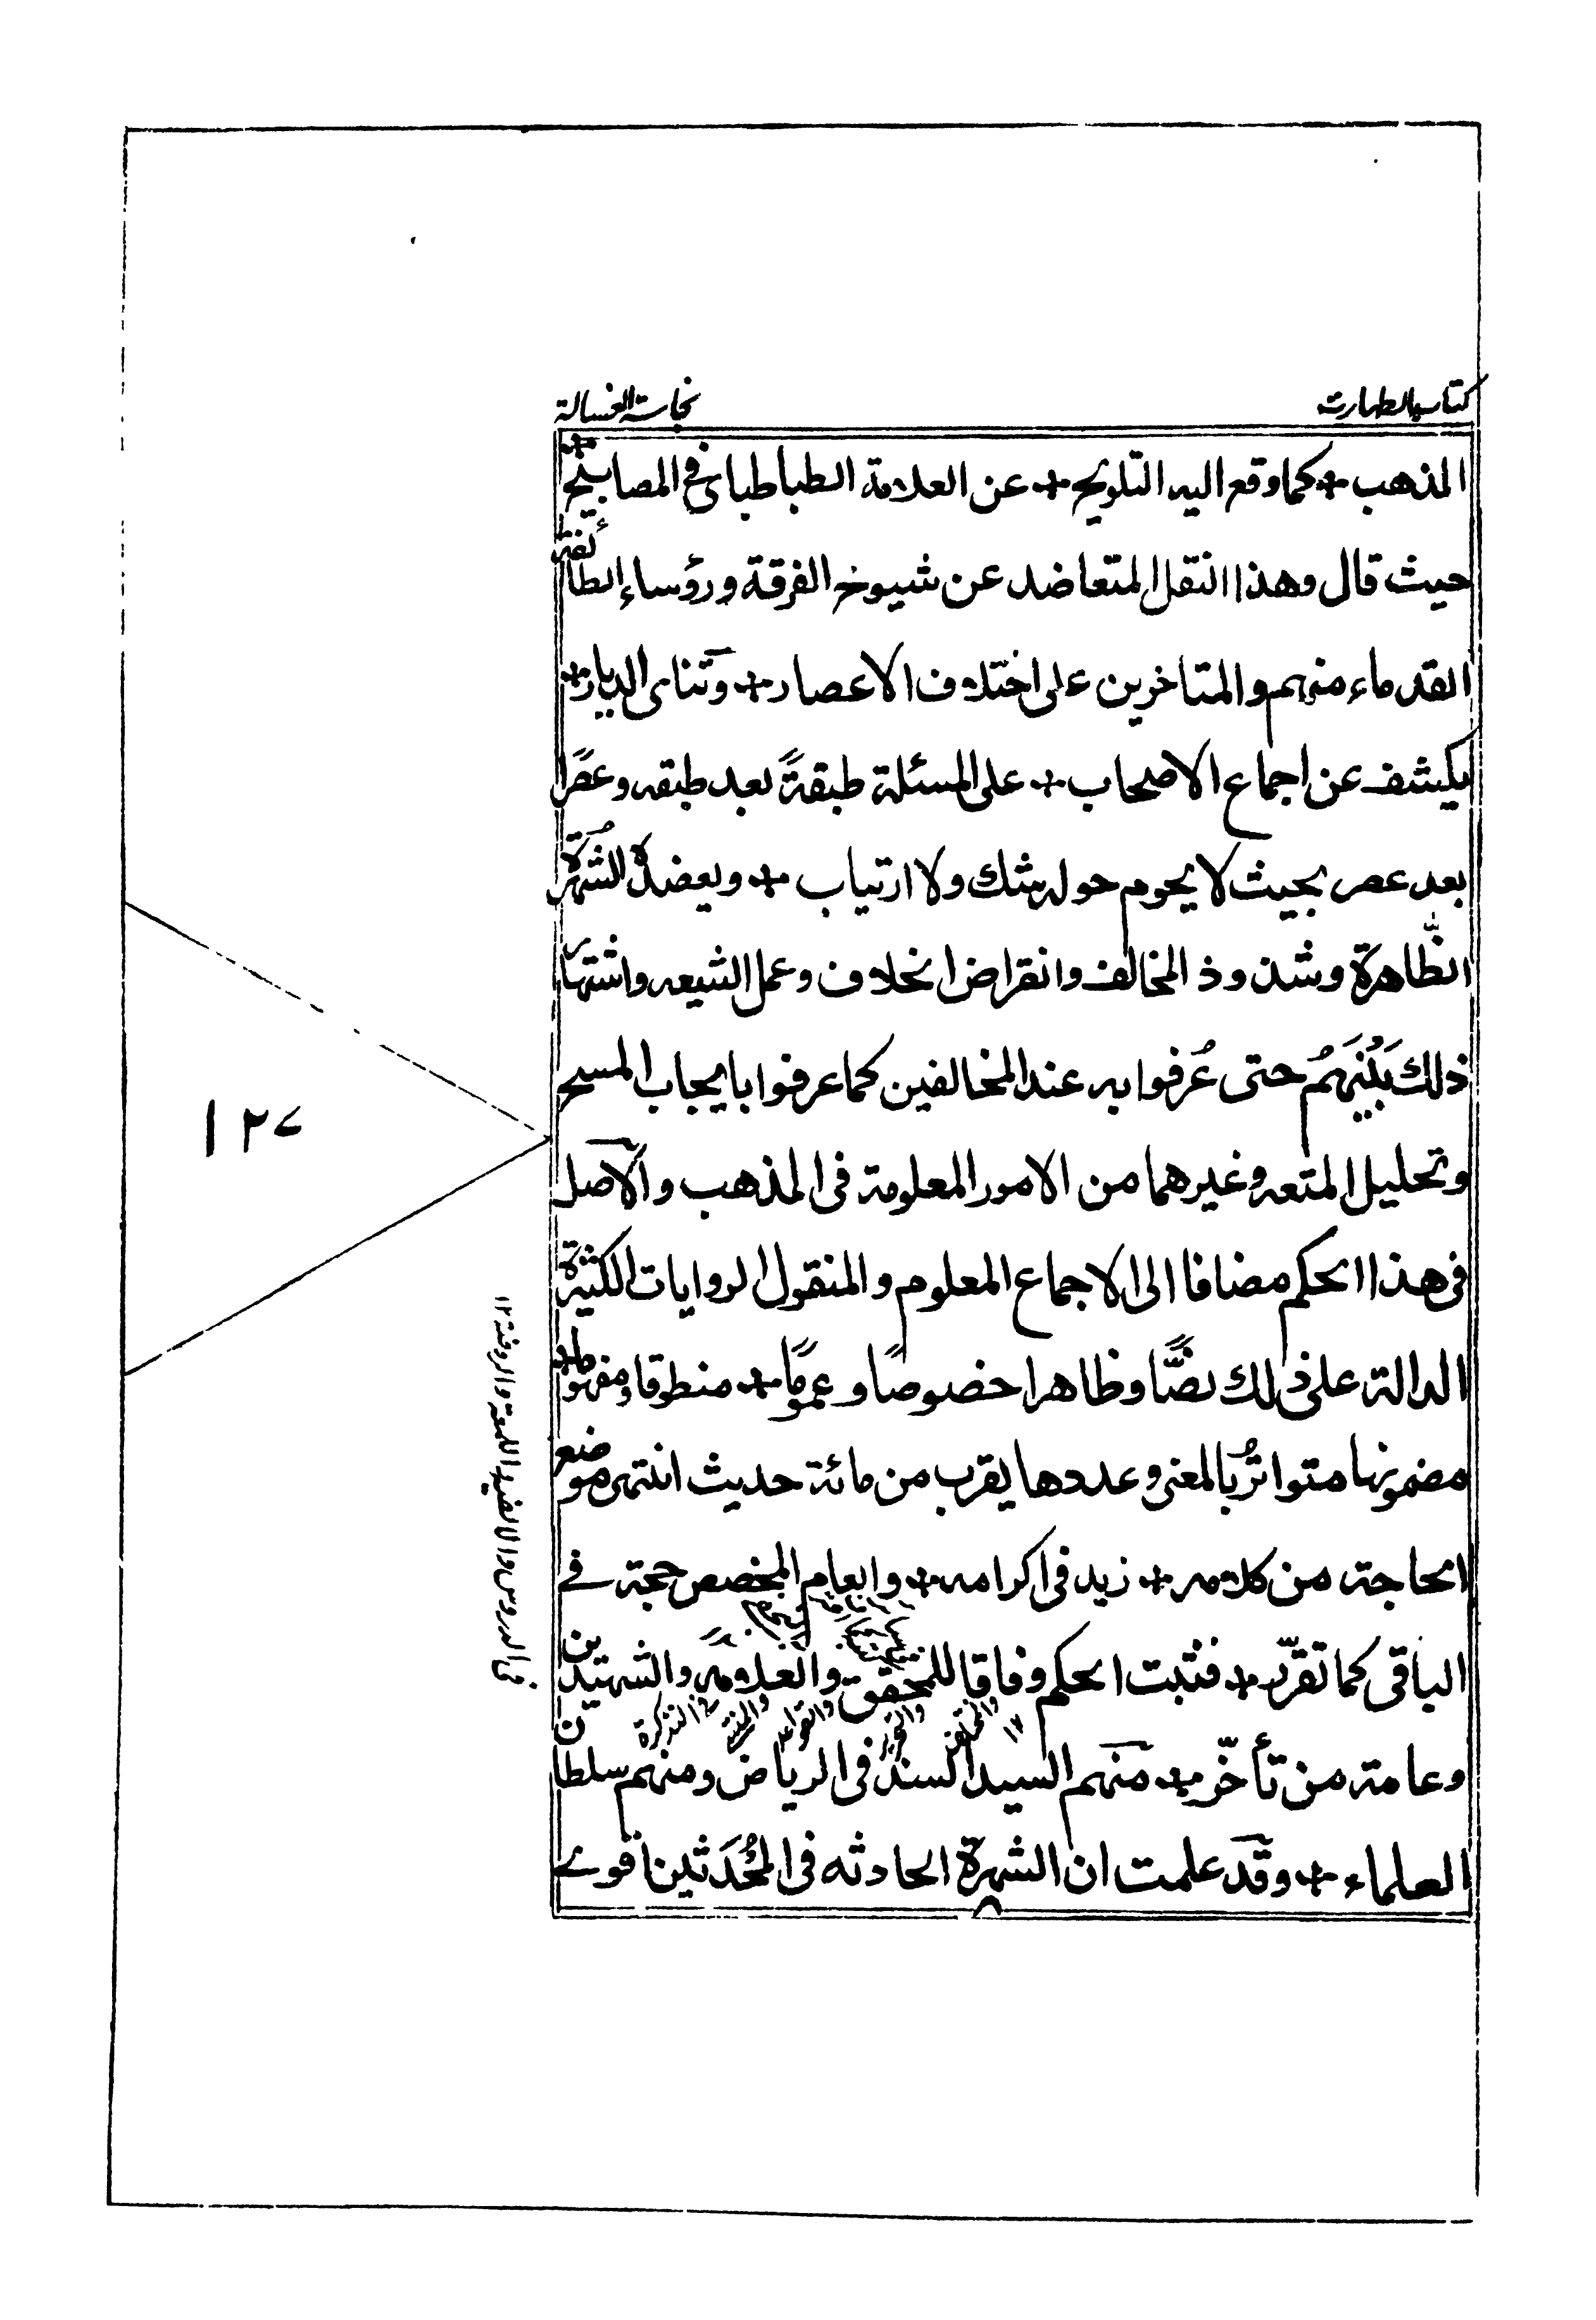 كتاب الطهارت
نجاسة الغسالة
المذهب + كما وقع اليه التلويح + عن العلامة الطباطبائى فى المصابيح +
حيث قال وهذا النقل المتعاضد عن شيوخ الفرقة ورؤساء الطائفة
القدماء منهم والمتاخرين على اختلاف الاعصار + وتنائى الديار +
يكشف عن اجماع الاصحاب + على المسئلة طبقةً بعد طبقه وعصرًا
بعد عصر بحيث لا يحوم حوله شك ولا ارتياب + ويعضده الشُهرة
الظّاهرة وشذوذ المخالف وانقراض الخلاف وعمل الشيعه واشتهار
ذلك بَيْنَهُمْ حتى عُرفوا به عند المخالفين كما عرفوا بايجاب المسح
وتحليل المتعه وغيرهما من الامور المعلومة فى المذهب والآصل
فى هذا الحكم مضافا الى الاجماع المعلوم والمنقول الروايات الكثيرة
الدالة على ذلك نصًّا وظاهرا خصوصًا وعمومًا + منطوقا ومفهوما +
مضمونها متواترُ بالمعنى وعددها يقرب من مائة حديث انتهى موضع
الحاجة من كلامه + زيد فى اكرامه + والعام المخصص حجة فے
الباقى كما تقرّر + فثبت الحكم وفاقا للمحقق والعلامة والشهيدين
والمختلف والتحرير والقواعد والمنتهى والتذكرة
وعامة من تأخّر + منهم السيد السند فى الرياض ومنهم سلطان
العلماء + وقد علمت ان الشهرة الحادثه فى المُحدَثين اقوے
فى الدروس والالفيه واللمعة والروضة ١٢
١٢٧